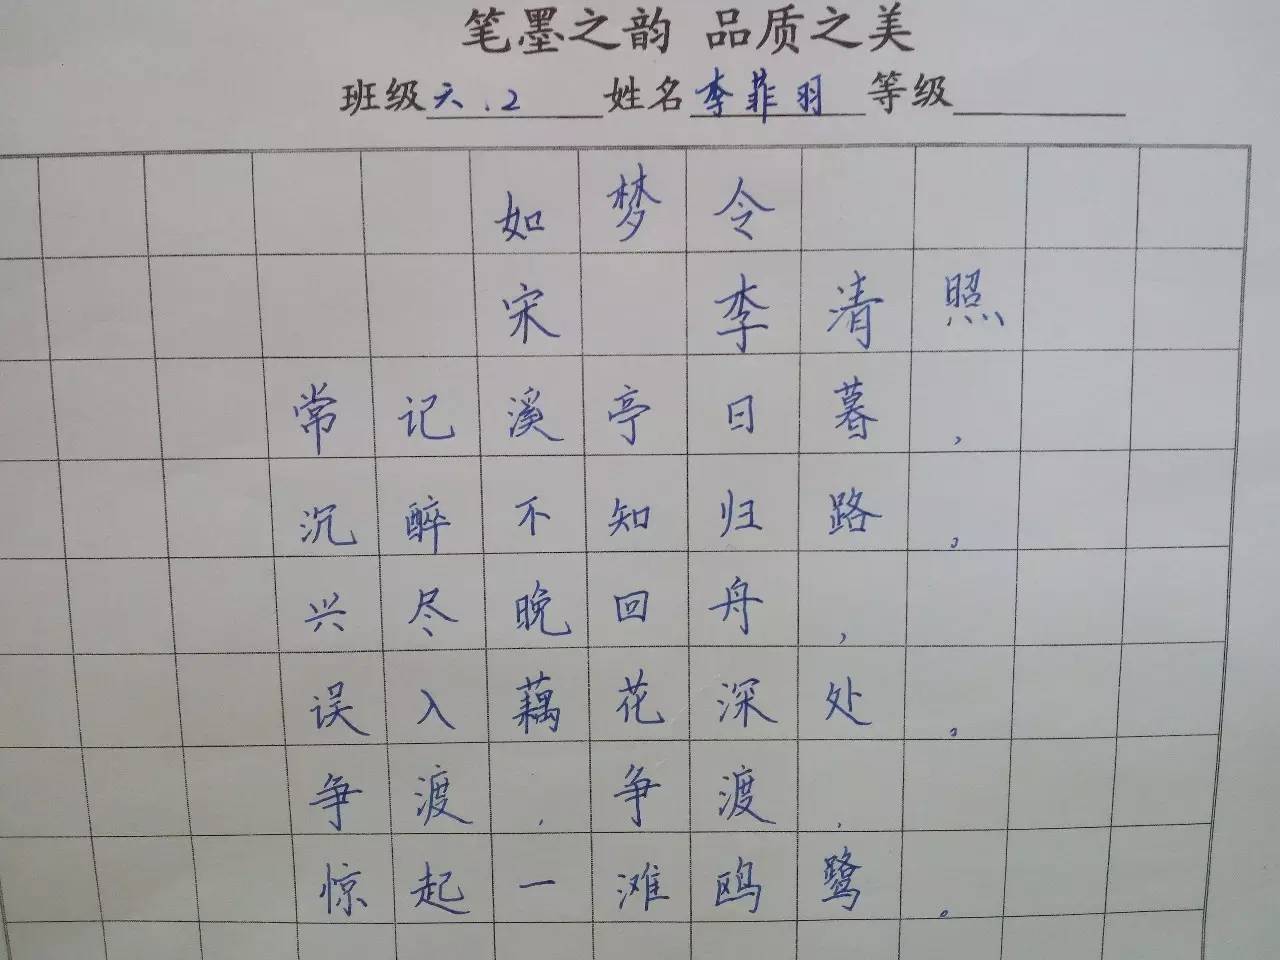 笔墨之韵 品质之美
班级六.2 姓名李菲羽 等级
如梦令
宋 李清照
常记溪亭日暮，
沉醉不知归路。
兴尽晚回舟，
误入藕花深处。
争渡，争渡，
惊起一滩鸥鹭。